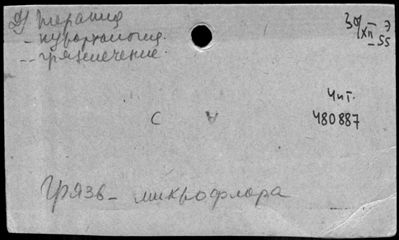 2) терапия
- курортология.
-- грязелечение.
30/XII - 55
Э
Чит.
480887
С А
Грязь - микрофлора